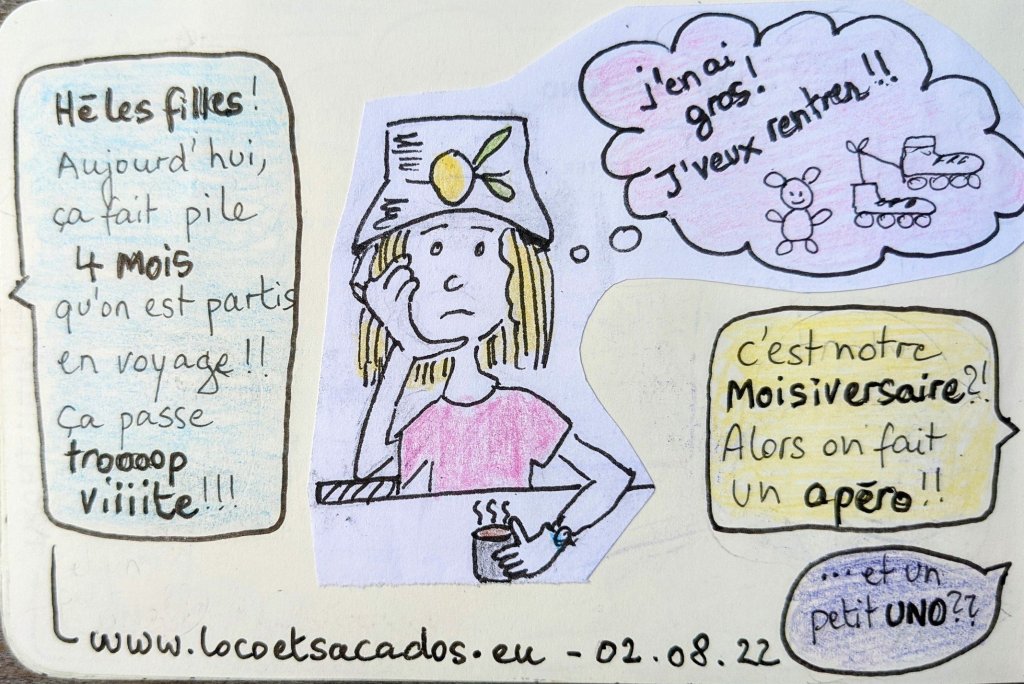 Hé les filles!
Aujourd'hui,
ça fait pile
4 MOIS
qu'on est partis
en voyage!!
ça passe
troooop
viiiite!!!
j'en ai
gros!
J'veux rentrer!!!
c'est notre
Moisiversaire?!
Alors on fait
un apéro!!
...et un
petit UNO??
www.locoetsacados.eu - 02.08.22